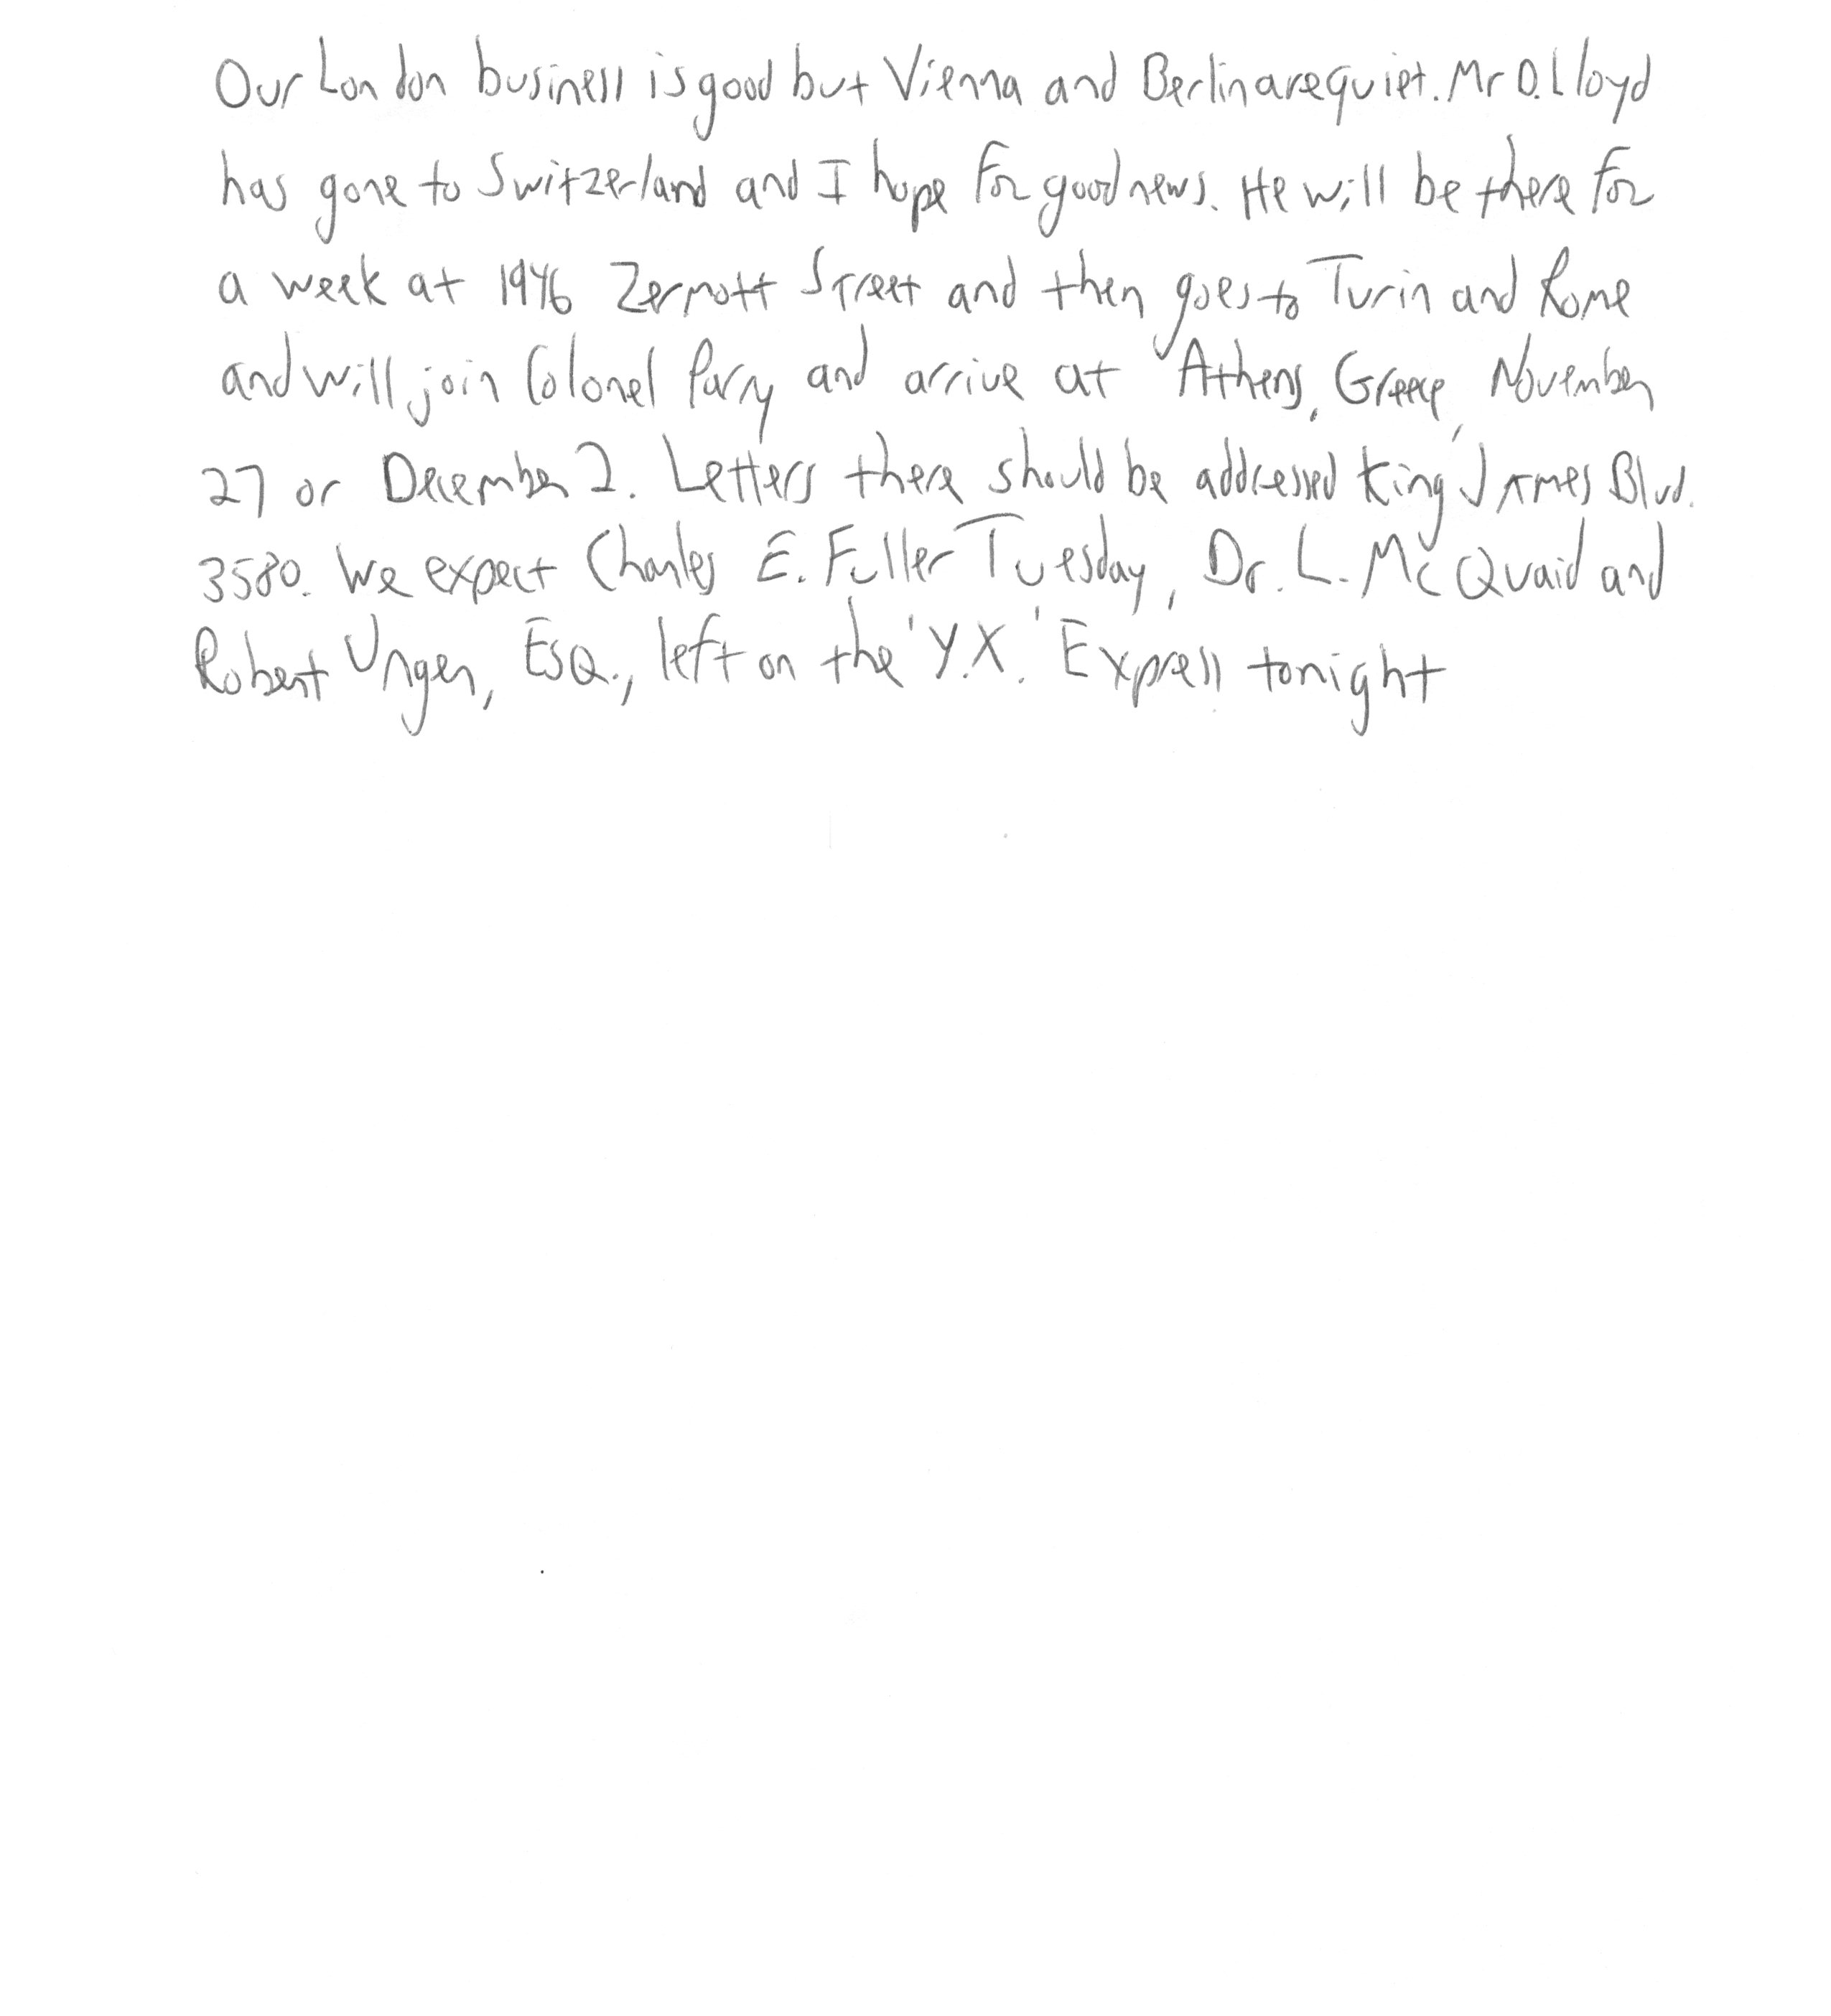 Our London business is good but Vienna and Berlin are quiet. Mr D. Lloyd
has gone to Switzerland and I hope for good news. He will be there for
a week at 1946 Zermott Street and then goes to Turin and Rome
and will join Colonel Parry and arrive at Athens, Greece, November
27 or December 2. Letters there should be addressed King James Blvd.
3580. We expect Charles E. Fuller Tuesday, Dr. L. McQuaid and
Robert Unger, Esq., left on the 'Y.X.' Express tonight